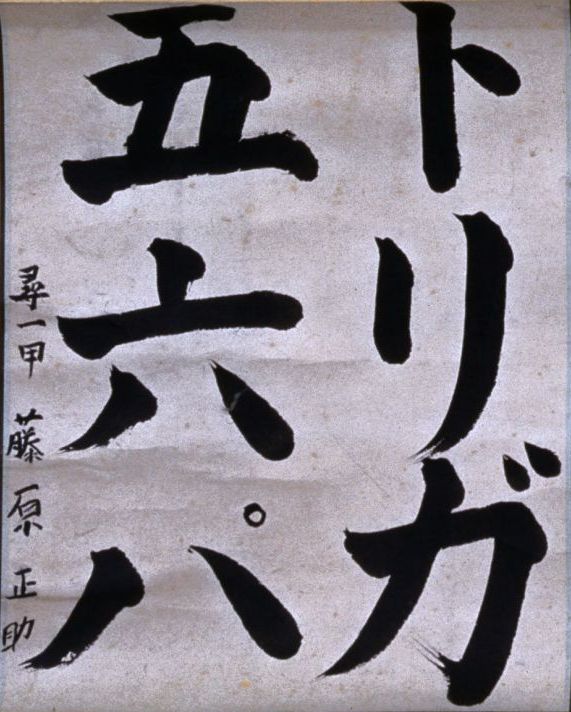 トリガ
五六パ
尋一甲 藤原正助